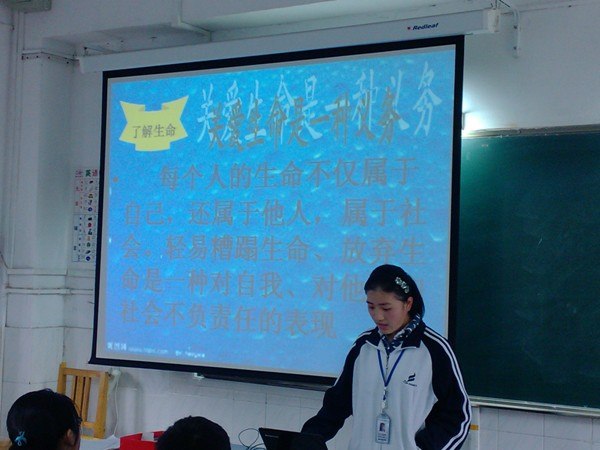 Redleaf
关爱生命是一种义务
了解生命
每个人的生命不仅属于
自己，还属于他人，属于社
会。轻易糟蹋生命、放弃生
命是一种对自我、对他
社会不负责任的表现